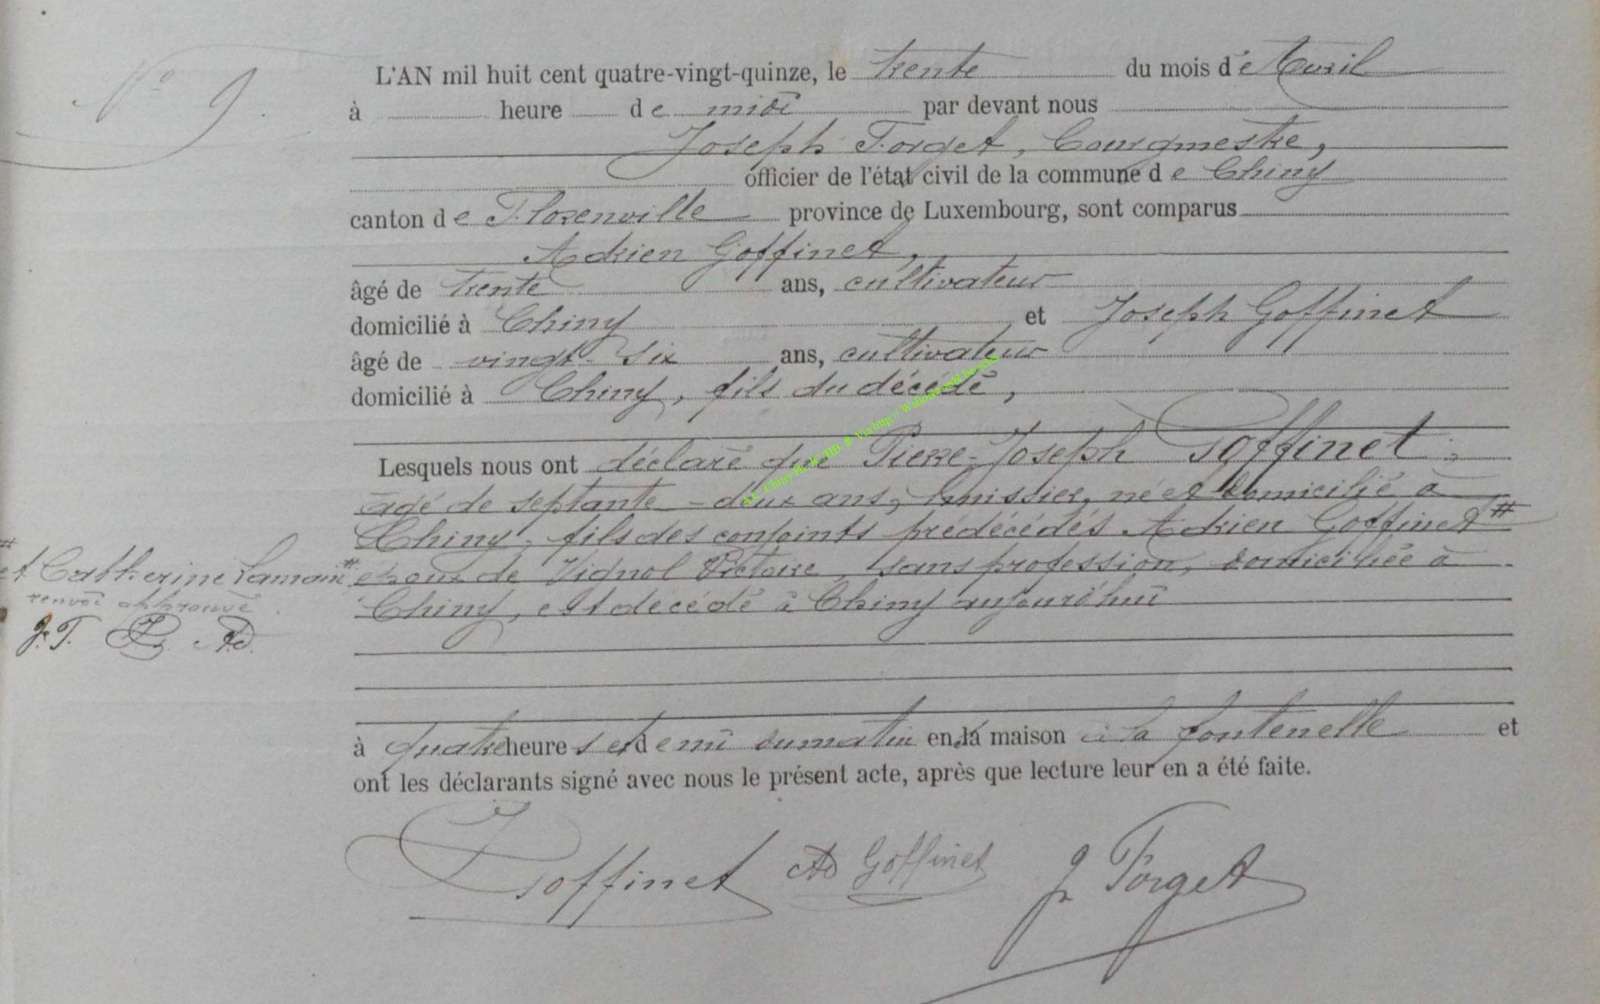 N° 9
L'AN mil huit cent quatre-vingt-quinze, le trente du mois d'Avril
à heure de midi par devant nous
Joseph Forget, bourgmestre,
officier de l'état civil de la commune de Chiny
canton de Florenville province de Luxembourg, sont comparus
Adrien Goffinet,
âgé de trente ans, cultivateur
domicilié à Chiny et Joseph Goffinet
âgé de vingt-six ans, cultivateur
domicilié à Chiny, fils du décédé,
Lesquels nous ont déclaré que Pierre-Joseph Goffinet,
âgé de septante-deux ans, huissier, né et domicilié à
Chiny, fils des conjoints prédécédés Adrien Goffinet #
# et Catherine #
renvoi approuvé
J. F. AD.
époux de Vignol Victoire, sans profession, domiciliée à
Chiny, est décédé à Chiny aujourd'hui
à quatre heures et demi du matin en la maison à la fontenelle et
ont les déclarants signé avec nous le présent acte, après que lecture leur en a été faite.
J Goffinet AD Goffinet J Forget